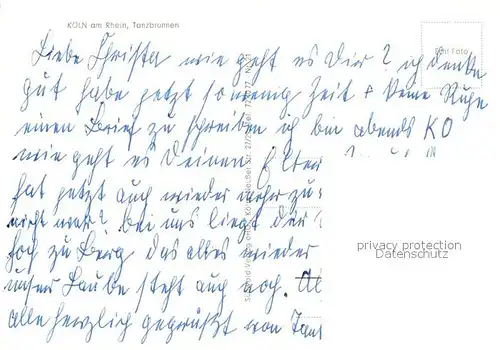 KÖLN am Rhein, Tanzbrunnen
Echt Foto
Liebe Christa wie geht es Dir? ich denke
gut habe jetzt so wenig Zeit + keine Ruhe
einen Brief zu schreiben ich bin abends KO
wie geht es Deinen Eltern
hat jetzt auch wieder mehr zu
nicht war? bei uns liegt der
hoch zu Berg das alles wieder
unser Laube steht auch noch.
alle herzlich gegrüßt von Tant
privacy protection
Datenschutz